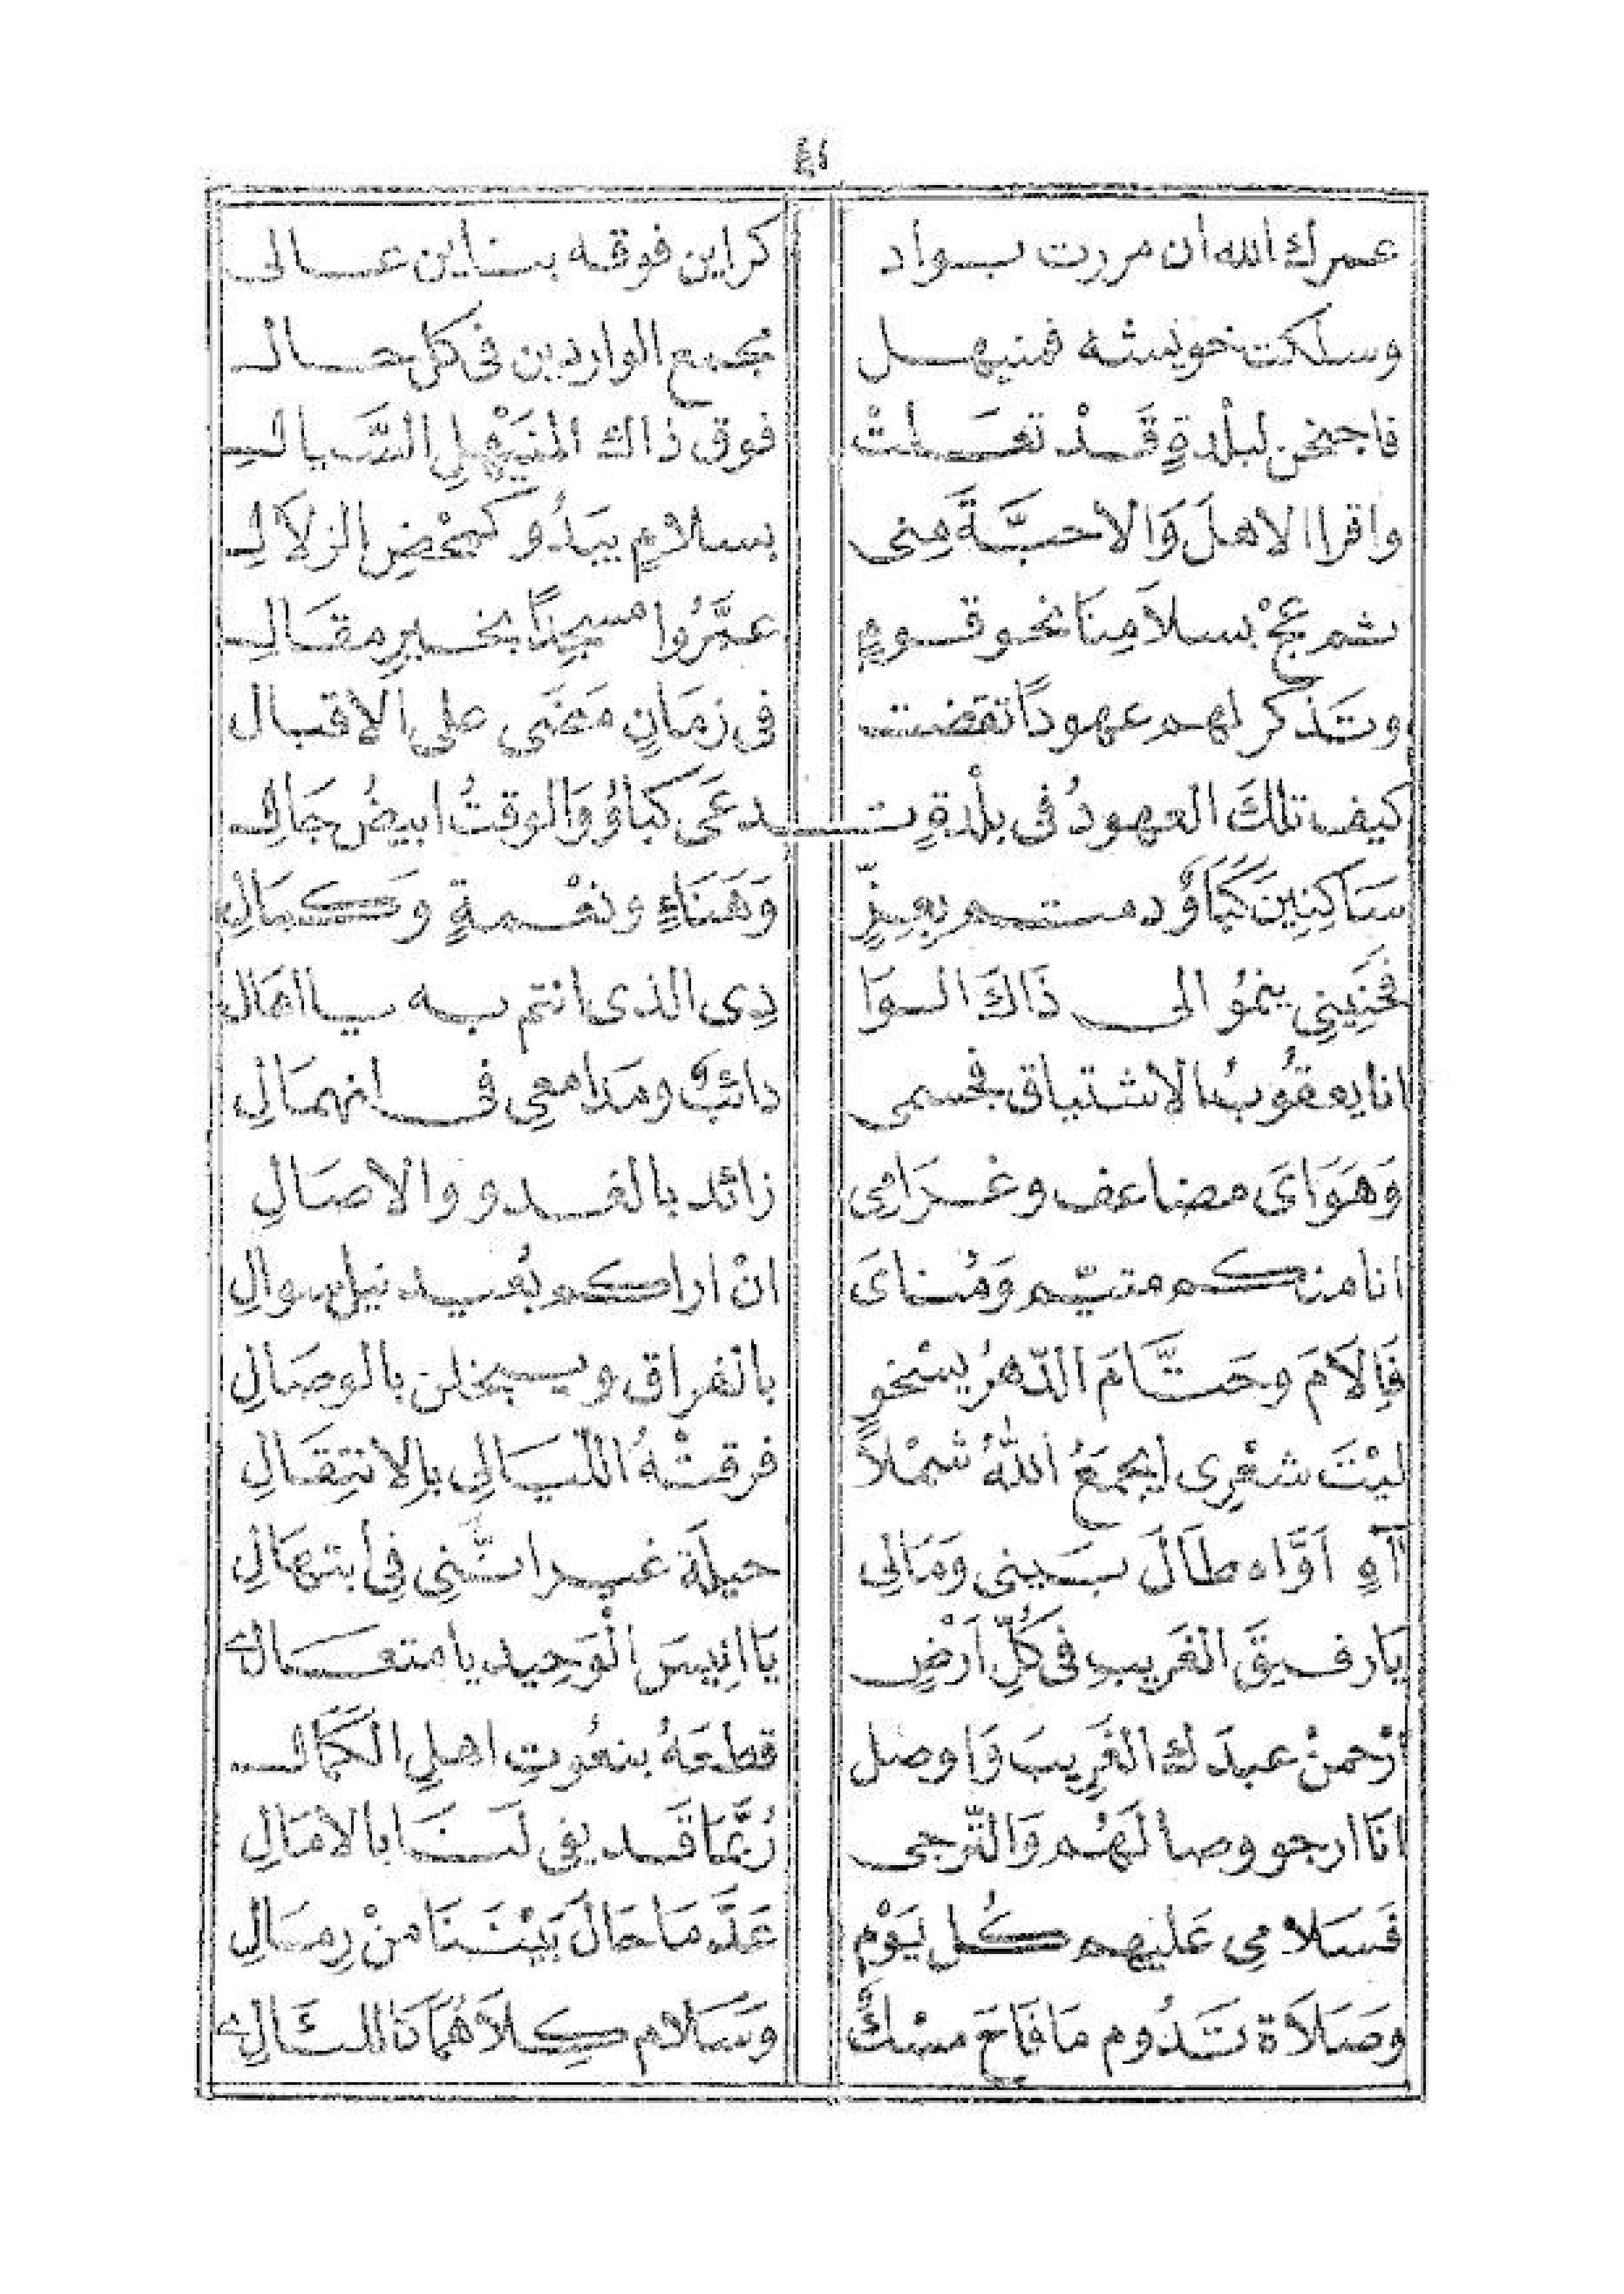 عمرك الله ان مررت بواد كراين فوقه بناين عالى
وسلكت خويشه فمنيهل مجمع الواردين فى كل حال
فاجنحن لبلدةٍ قَدْ تعَلتْ فوق ذاك المنَيْهِلِ السَّيالِ
واقرا الاهلَ وَالاحبَّةَ مِنى بسلامٍ يبَدُو كمحْضِ الزلاَلِ
ثم عجْ بسلاَمِنَا نحو قومٍ عمَّرُوا مسجِدًا بخيرِ مقَالِ
وتَذكر لهم عهودًا تقضت فى زمَانٍ مَضَى على الاقبال
كيف تلكَ العهودُ فى بلْدةٍ تدعَى كبَاوُ وَالوقتُ ابيضُ حَالِ
سَاكِنِينَ كَبَاوُ دمتم بعِزٍّ وَهَنَاءٍ ونعْمةٍ وَكمَالِ
فَحَنِينِى ينمُو الى ذَاكَ السوَا دِى الذى انتم به يا اهَال
انا يعقُوبُ الاشتياق فجسمى دائبٌ ومَدَامعِى فى انهمَالِ
وَهَوَاىَ مضاعف وغَرَامِى زائد بالغدو والاصَالِ
انا منكم متيّم وَمُناىَ انْ اراكم بُعيد نيل سوالِ
فَإِلاَمَ وحَتَّامَ الدّهرُ يسْخو بالفراق ويبخلن بالوصَالِ
ليْتَ شعْرِى ايجمَعُ اللهُ شمْلاً فرقتْهُ اللّيَالِى بالانتِقَالِ
آهِ اَوَّاه طَالَ بَينى وَمَالِى حيلَة غير انَّنى فِى ابتهَالِ
يَا رفيقَ الغَريبِ فى كُلِّ اَرْضٍ يَا اَنِيسَ الْوَحِيد يا متعَالِ
ارْحمنْ عبدَك الغَرِيبَ وَاوصل قطعَهُ بنعُوتِ اهلِ الكَمَالِ
انَا ارجو وصالَهُم وَالتَّرجى رُبَّمَا قَد يفِى لَنَا بالامَالِ
فَسَلامِى عَليهم كُل يَوْم عَدَّ مَا حَالَ بَيْنَنَا منْ رِمَالِ
وصَلاَة تَدُوم مَا فَاحَ مسْكٌ وَسَلام كِلاَهُمَا